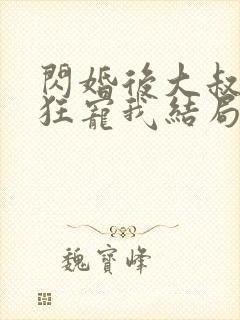 閃婚後大叔
狂寵我結局
魏寶峰